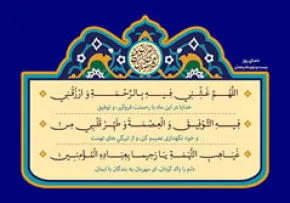 دعای روز
بیست و نهم ماه رمضان
اللّهُمَّ غَشِّنی فیهِ بِالرَّحْمَةِ وَ ارْزُقْنی
خدایا در این ماه با رحمتت فروگیر، و توفیق
فیهِ التَّوْفیقَ وَ الْعِصْمَةَ وَ طَهِّرْ قَلْبی مِنْ
و خود نگهداری نصیبم کن، و از تیرگی های تهمت
غَیاهِبِ التُّهْمَةِ یَا رَحیماً بِعِبادِهِ الْمُؤْمِنینَ
دلم را پاک گردان، ای مهربان به بندگان با ایمان.